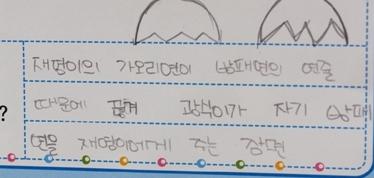 재영이의 가오리연이 방패연의 연줄
때문에 끊겨 광식이가 자기 방패
연을 재영이에게 주는 장면
?